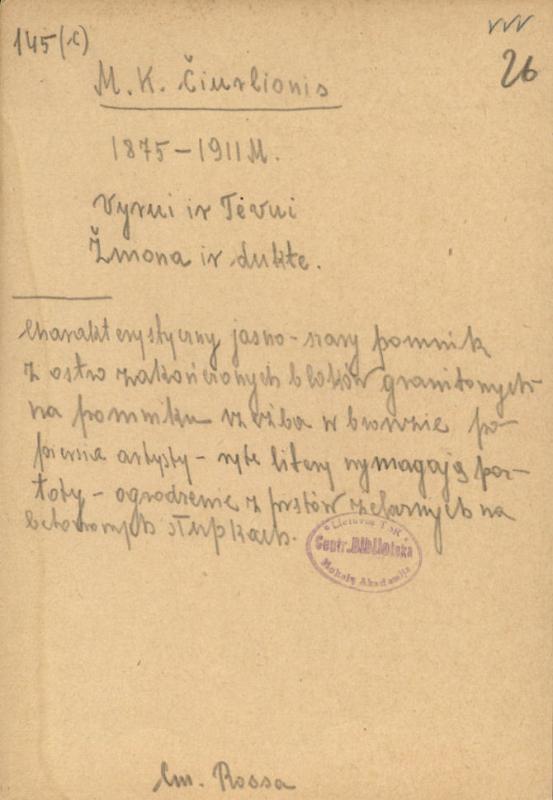 145(c)
vvv
26
M. K. Čiurlionis
1875–1911 M.
Vyrui ir Tėvui
Žmona ir duktė.
Charakterystyczny jasno-szary pomnik
z ostro zakończonych bloków granitowych
na pomniku rzeźba w bronzie po-
piersie artysty – ryte litery wymagają poz-
łoty – ogrodzenie z prętów żelaznych na
betonowych słupkach.
Lietuvos TSR
Centr. Biblioteka
Mokslų Akademija
Cm. Rossa